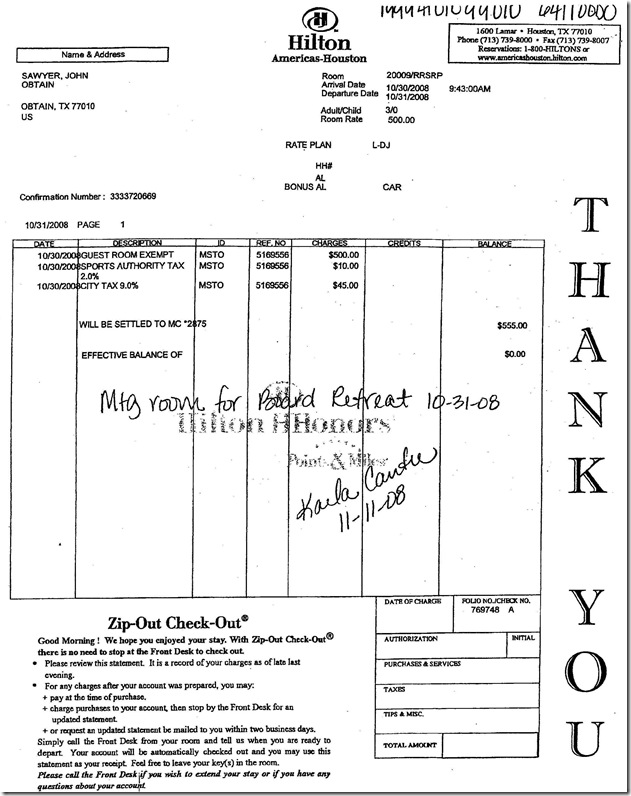 1999410199010 64110000
Hilton
Americas-Houston
1600 Lamar • Houston, TX 77010
Phone (713) 739-8000 • Fax (713) 739-8007
Reservations: 1-800-HILTONS or
www.americashouston.hilton.com
Name & Address
SAWYER, JOHN
OBTAIN
OBTAIN, TX 77010
US
Room 20009/RRSRP
Arrival Date 10/30/2008 9:43:00AM
Departure Date 10/31/2008
Adult/Child 3/0
Room Rate 500.00
RATE PLAN L-DJ
HH#
AL
BONUS AL CAR
Confirmation Number : 3333720669
10/31/2008 PAGE 1
DATE DESCRIPTION ID REF. NO CHARGES CREDITS BALANCE
10/30/2008 GUEST ROOM EXEMPT MSTO 5169556 $500.00
10/30/2008 SPORTS AUTHORITY TAX MSTO 5169556 $10.00
2.0%
10/30/2008 CITY TAX 9.0% MSTO 5169556 $45.00
WILL BE SETTLED TO MC *2875 $555.00
EFFECTIVE BALANCE OF $0.00
Mtg room for Board Retreat 10-31-08
Hilton HHonors
Points & Miles
Karla
11-11-08
THANK YOU
Zip-Out Check-Out®
Good Morning ! We hope you enjoyed your stay. With Zip-Out Check-Out®
there is no need to stop at the Front Desk to check out.
• Please review this statement. It is a record of your charges as of late last
evening.
• For any charges after your account was prepared, you may:
+ pay at the time of purchase.
+ charge purchases to your account, then stop by the Front Desk for an
updated statement.
+ or request an updated statement be mailed to you within two business days.
Simply call the Front Desk from your room and tell us when you are ready to
depart. Your account will be automatically checked out and you may use this
statement as your receipt. Feel free to leave your key(s) in the room.
Please call the Front Desk if you wish to extend your stay or if you have any
questions about your account.
DATE OF CHARGE FOLIO NO./CHECK NO.
769748 A
AUTHORIZATION INITIAL
PURCHASES & SERVICES
TAXES
TIPS & MISC.
TOTAL AMOUNT